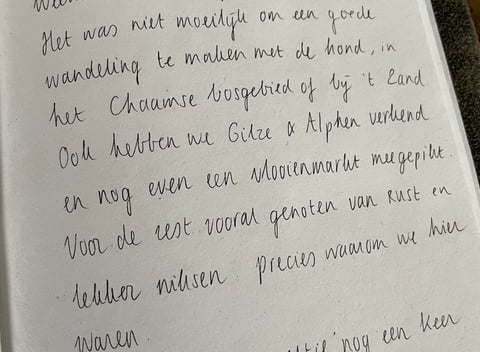 Het was niet moeilijk om een goede
wandeling te maken met de hond, in
het Chaamse bosgebied of bij 't Zand.
Ook hebben we Gilze & Alphen verkend
en nog even een vlooienmarkt meegepikt.
Voor de rest vooral genoten van rust en
lekker niksen. precies waarom we hier
waren.
nog een keer